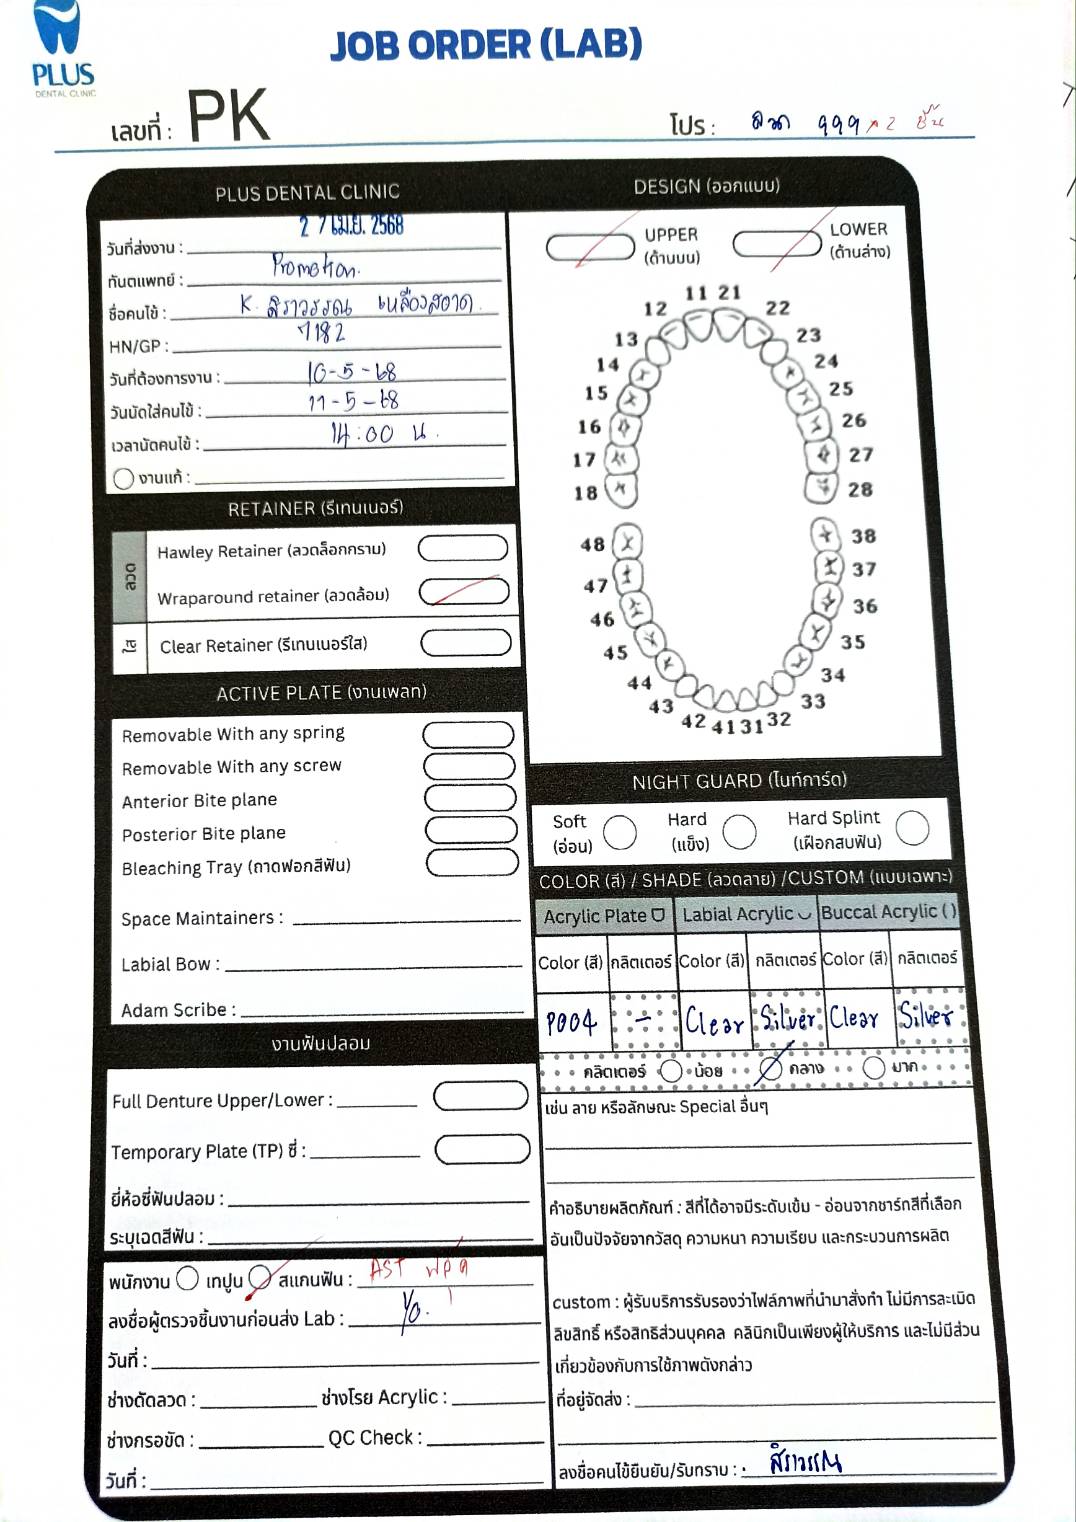 PLUS
DENTAL CLINIC
JOB ORDER (LAB)
เลขที่ : PK
โปร : ลวด 999 x 2 ชิ้น
PLUS DENTAL CLINIC
วันที่ส่งงาน : 27 เม.ย. 2568
ทันตแพทย์ : Promotion.
ชื่อคนไข้ : K. สิราวรรณ เหลืองสอาด.
HN/GP : 7182
วันที่ต้องการงาน : 10-5-68
วันนัดใส่คนไข้ : 11-5-68
เวลานัดคนไข้ : 14:00 น.
งานแก้ :
RETAINER (รีเทนเนอร์)
ลวด
Hawley Retainer (ลวดล็อกกราม)
Wraparound retainer (ลวดล้อม)
ใส
Clear Retainer (รีเทนเนอร์ใส)
ACTIVE PLATE (งานเพลท)
Removable With any spring
Removable With any screw
Anterior Bite plane
Posterior Bite plane
Bleaching Tray (ถาดฟอกสีฟัน)
Space Maintainers :
Labial Bow :
Adam Scribe :
งานฟันปลอม
Full Denture Upper/Lower :
Temporary Plate (TP) ซี่ :
ยี่ห้อซี่ฟันปลอม :
ระบุเฉดสีฟัน :
พนักงาน เทปูน สแกนฟัน : AST
ลงชื่อผู้ตรวจชิ้นงานก่อนส่ง Lab :
วันที่ :
ช่างดัดลวด : ช่างโรย Acrylic :
ช่างกรอขัด : QC Check :
วันที่ :
DESIGN (ออกแบบ)
UPPER
(ด้านบน)
LOWER
(ด้านล่าง)
11 21
12 22
13 23
14 24
15 25
16 26
17 27
18 28
48 38
47 37
46 36
45 35
44 34
43 33
42 41 31 32
NIGHT GUARD (ไนท์การ์ด)
Soft
(อ่อน)
Hard
(แข็ง)
Hard Splint
(เฝือกสบฟัน)
COLOR (สี) / SHADE (ลวดลาย) /CUSTOM (แบบเฉพาะ)
Acrylic Plate Labial Acrylic Buccal Acrylic ( )
Color (สี) กลิตเตอร์ Color (สี) กลิตเตอร์ Color (สี) กลิตเตอร์
P004 - Clear Silver Clear Silver
กลิตเตอร์ น้อย กลาง มาก
เช่น ลาย หรือลักษณะ Special อื่นๆ
คำอธิบายผลิตภัณฑ์ : สีที่ได้อาจมีระดับเข้ม - อ่อนจากชาร์ทสีที่เลือก
อันเป็นปัจจัยจากวัสดุ ความหนา ความเรียบ และกระบวนการผลิต
custom : ผู้รับบริการรับรองว่าไฟล์ภาพที่นำมาสั่งทำ ไม่มีการละเมิด
ลิขสิทธิ์ หรือสิทธิส่วนบุคคล คลินิกเป็นเพียงผู้ให้บริการ และไม่มีส่วน
เกี่ยวข้องกับการใช้ภาพดังกล่าว
ที่อยู่จัดส่ง :
ลงชื่อคนไข้ยืนยัน/รับทราบ : สิราวรรณ